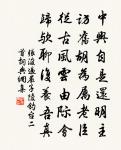 中興自是還明主
訪舊胡為屬老臣
從古風雲由際會
歸歟聊復養吾真
張浚過嚴子陵釣台二
首詞典網集